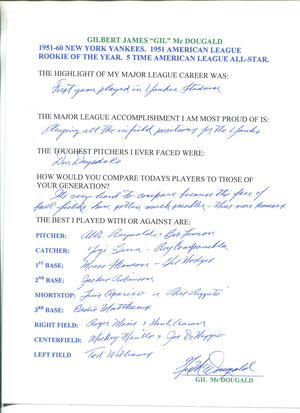 GILBERT JAMES "GIL" Mc DOUGALD
1951-60 NEW YORK YANKEES. 1951 AMERICAN LEAGUE
ROOKIE OF THE YEAR. 5 TIME AMERICAN LEAGUE ALL-STAR.
THE HIGHLIGHT OF MY MAJOR LEAGUE CAREER WAS:
First game played in Yankee Stadium
THE MAJOR LEAGUE ACCOMPLISHMENT I AM MOST PROUD OF IS:
Playing all the infield positions for the Yanks
THE TOUGHEST PITCHERS I EVER FACED WERE:
Don Drysdale
HOW WOULD YOU COMPARE TODAYS PLAYERS TO THOSE OF
YOUR GENERATION?
It's very hard to compare because the size of
ball fields have gotten much smaller - thus more homers.
THE BEST I PLAYED WITH OR AGAINST ARE:
PITCHER: Allie Reynolds - Bob Lemon
CATCHER: Yogi Berra - Roy Campanella
1ST BASE: Moose Skowron - Gil Hodges
2ND BASE: Jackie Robinson
SHORTSTOP: Luis Aparicio or Phil Rizzuto
3RD BASE: Eddie Matthews
RIGHT FIELD: Roger Maris & Hank Aaron
CENTERFIELD: Mickey Mantle & Joe DiMaggio
LEFT FIELD Ted Williams
Gil McDougald
GIL McDOUGALD